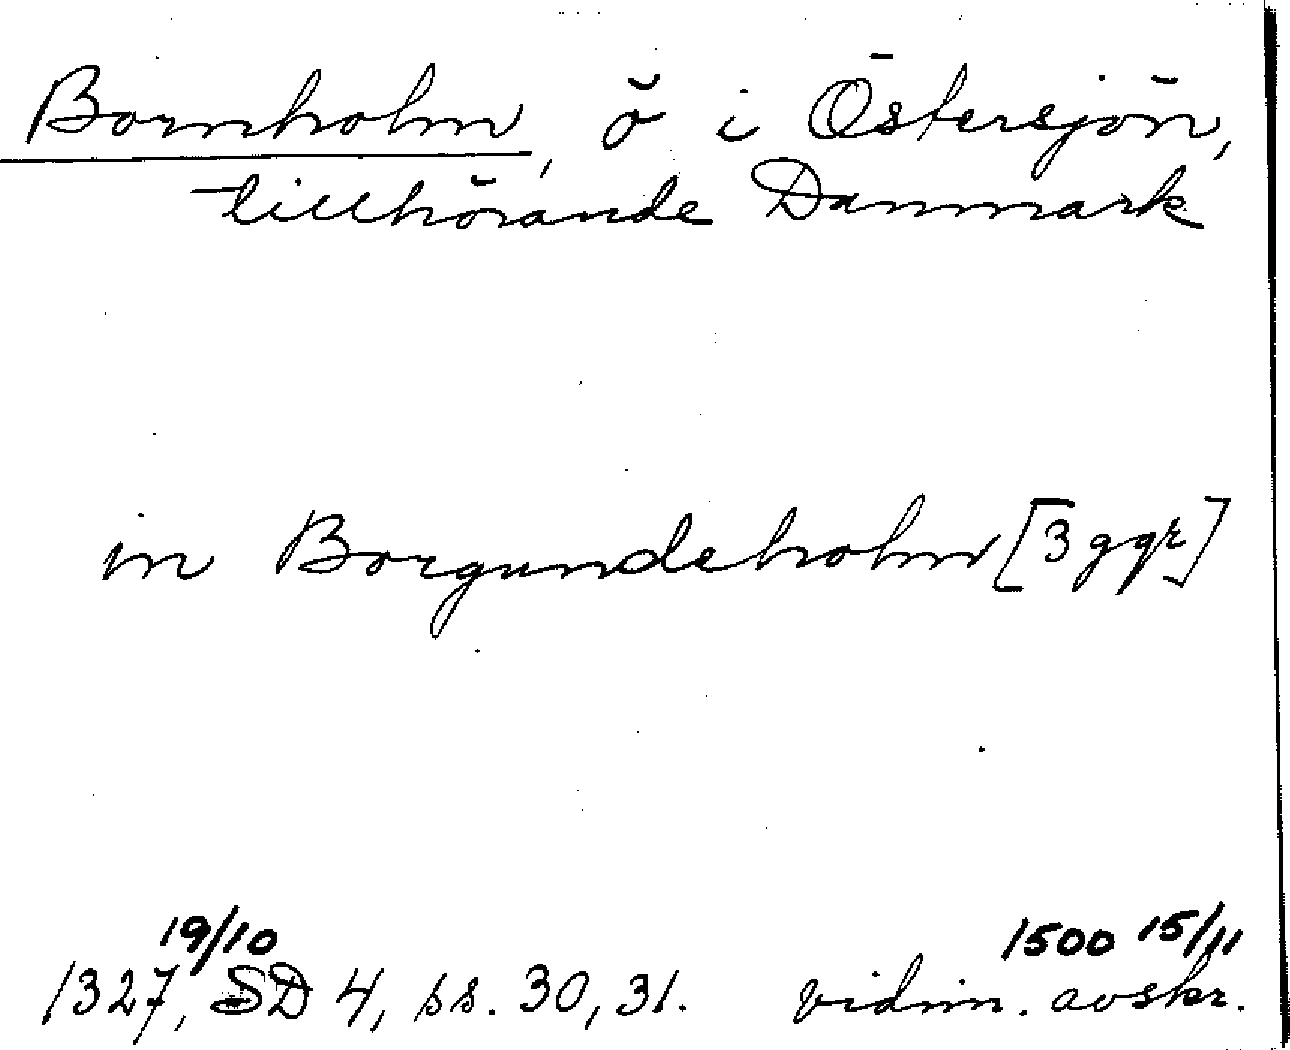 Bornholm, ö i Östersjön,
tillhörande Danmark
in Borgundeholm [3 ggr]
19/10 1500 15/11
1327, SD 4, ss. 30, 31. vidim. avskr.